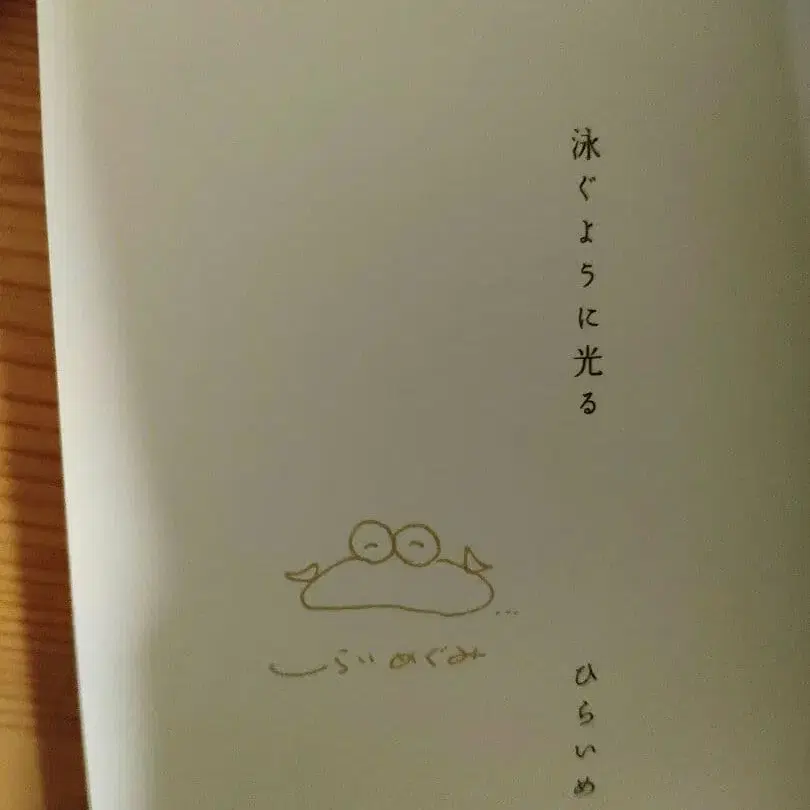 泳ぐように光る
ひらいめ
ひらいめぐみ